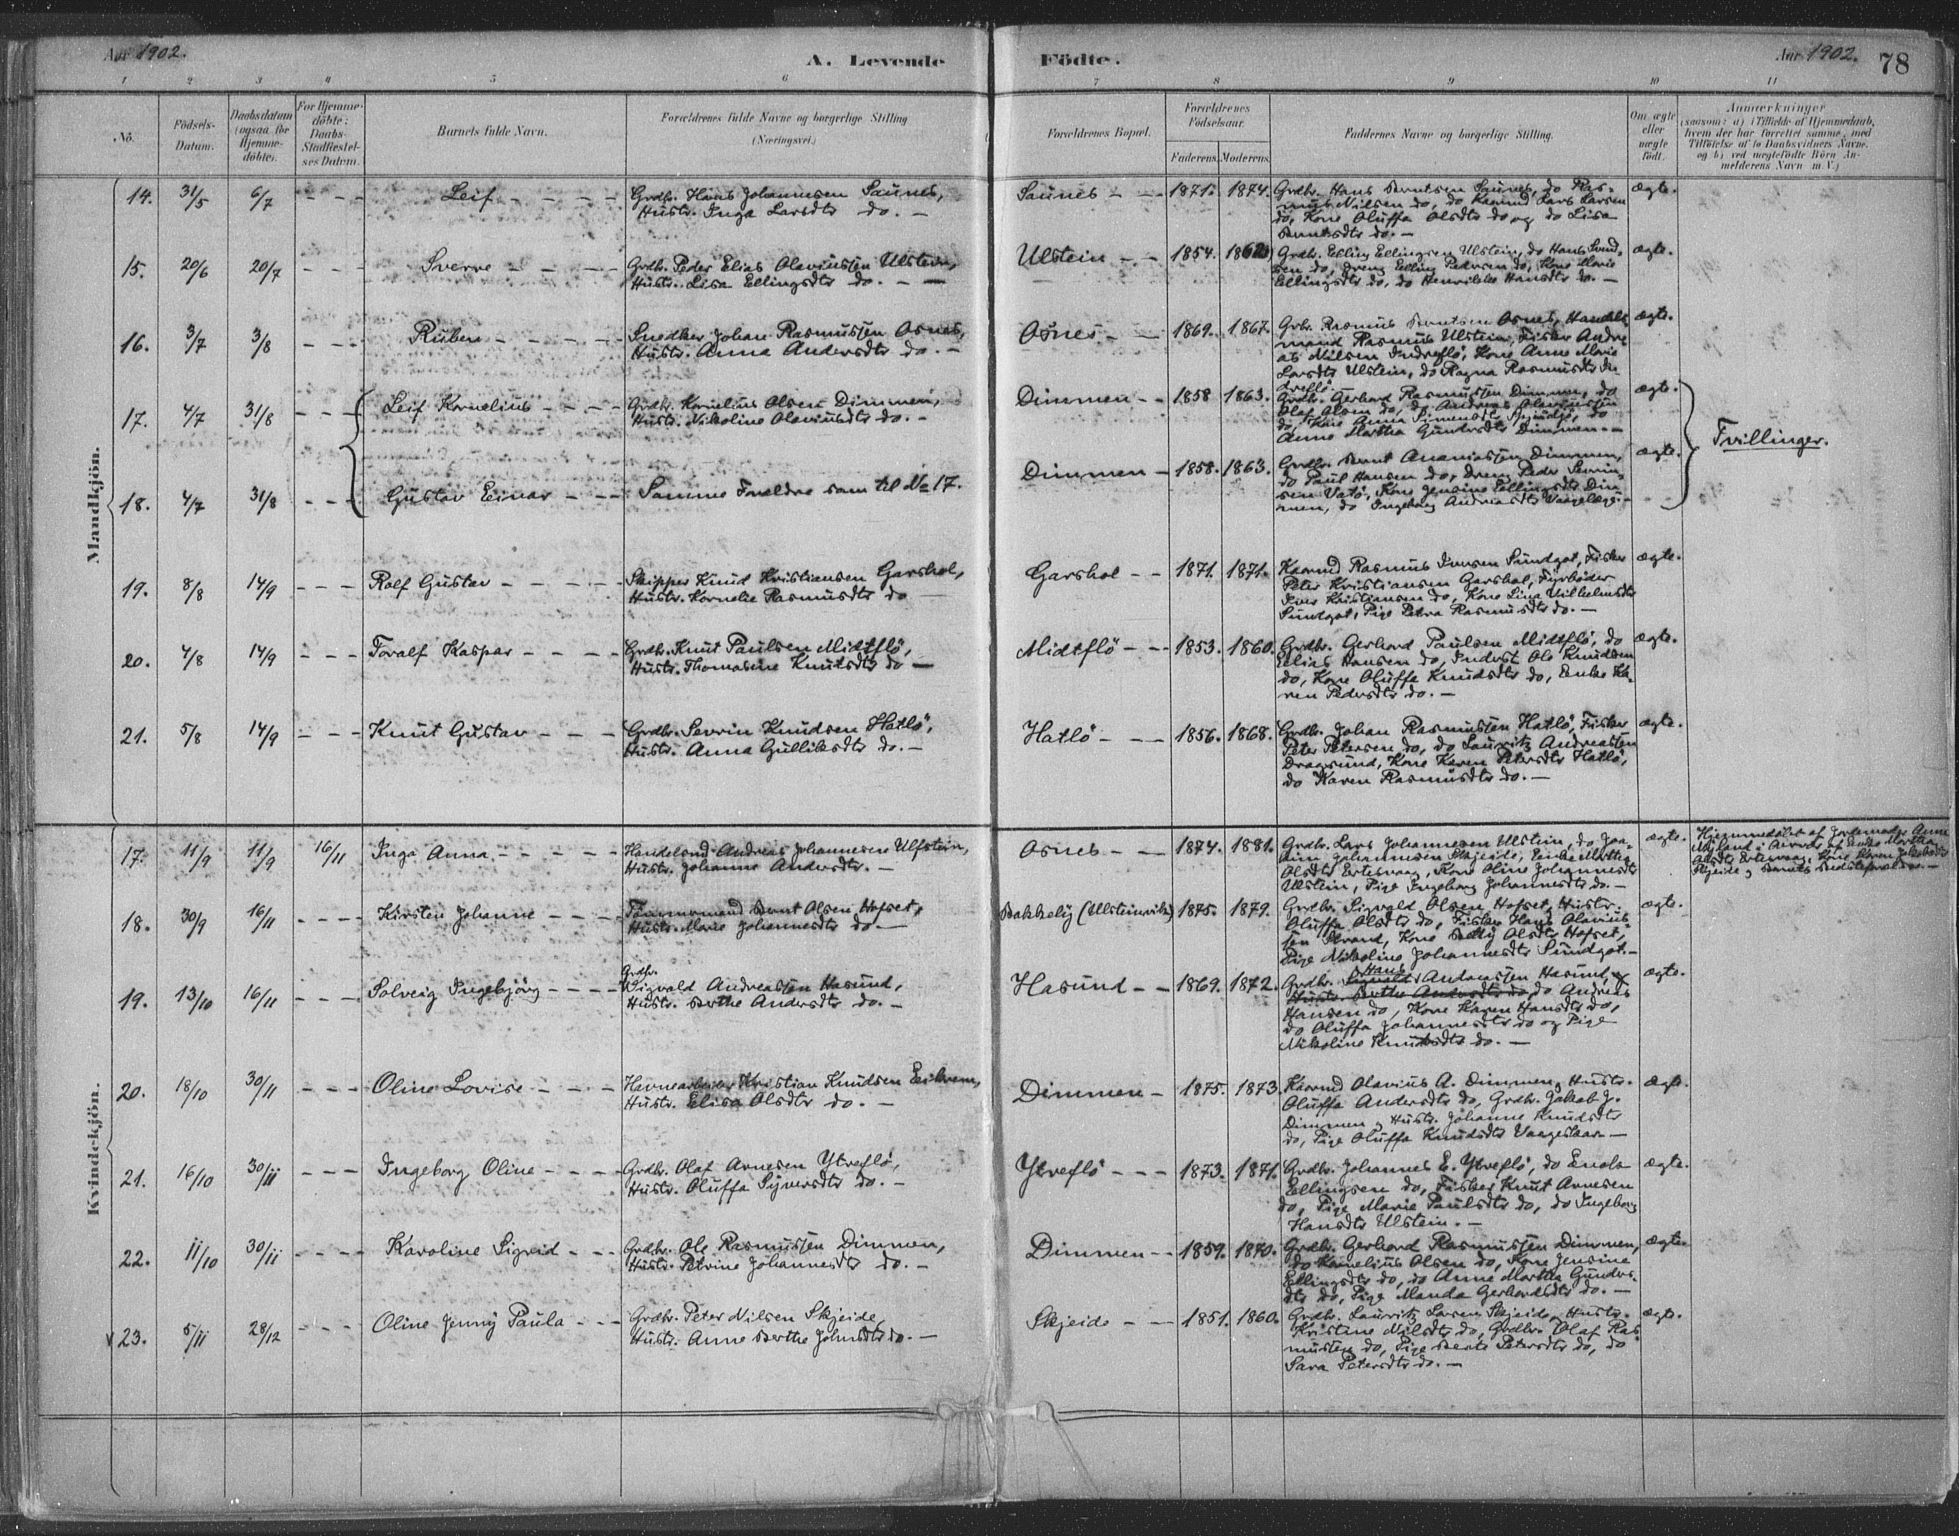 Aar 1902.
A. Levende Födte.
Aar 1902. 78
1 2 3 4 5 6 7 8 9 10 11
No. Födsels-Datum. Daabsdatum (ogsaa for Hjemme-döbte). For Hjemme-döbte: Daabs-Stadfæstel-ses Datum. Barnets fulde Navn. Forældrenes fulde Navne og borgerlige Stilling (Næringsvei.) Forældrenes Bopæl. Forældrenes Födselsaar. Faderens. Moderens. Faddernes Navne og borgerlige Stilling. Om ægte eller uægte födt. Anmærkninger (saasom: a) i Tilfælde af Hjemmedaab, hvem der har forrettet samme, med Tilföielse af to Daabsvidners Navne. og b) ved uægtefödte Börn An-melderens Navn m. V.)
Mandkjön.
14. 31/5 6/7 - - - Leif - - - - Grdbr. Hans Johannesen Saunes, Saunes - - 1871. 1874. Grdbr. Hans Berntsen Saunes, do Ras- ægte.
Hustr. Inga Larsdtr do. - mus Nilsen do, do Kaarmd Lars Larsen
do, Kone Oluffa Olsdtr do og do Lisa
Berntsdtr do. -
15. 20/6 20/7 - - - Sverre - - - - Grdbr. Peder Elias Olaviussen Ulstein, Ulstein - - 1854. Grdbr. Elling Ellingsen Ulstein, do Hans Svend- ægte.
Hustr. Lisa Ellingsdtr do. - - sen do, Dreng Elling Pedersen do, Kone Marie
Ellingsdtr do, do Henrikke Hansdtr do. -
16. 3/7 3/8 - - - Ruben - - - - Snedker Johan Rasmussen Osnes, Osnes - - 1869. 1867. Grbr. Rasmus Berntsen Osnes, Handels- ægte.
Hustr. Anna Andersdtr do. - mand Rasmus Ulstein, Fisker Andre-
as Nilsen Indreflö, Kone Anne Marie
Larsdtr Ulstein, do Ragna Rasmusdtr In-
dreflö.
17. 4/7 31/8 - - - Leif Kornelius - - - - Grdbr. Kornelius Olsen Dimmen, Dimmen - - 1858 1863. Grdbr. Gerhard Rasmussen Dimmen, do ægte.
Hustr. Nikoline Olaviusdtr do. - Olaf Olsen do, do Andreas Olaviussen
do, Kone Anna Simensdtr Skjeidge, do
Anne Martha Gundersdtr Dimmen. -
Tvillinger.
18. 4/7 31/8 - - - Gustav Einar - - - Samme Forældre som til No 17. Dimmen - 1858. 1863. Grdbr. Bernt Ananiassen Dimmen, ægte.
do Paul Hansen do, Dreng Peder Sevrin-
sen Vatö, Kone Jensine Ellingsdtr Dim-
men, do Ingeborg Andreasdtr
19. 8/8 14/9 - - - Rolf Gustav - - - - Skipper Knud Kristiansen Garshol, Garshol - - 1871. 1871. Kaarmd Rasmus Iversen Sundgot, Fisker ægte.
Hustr. Kornelie Rasmusdtr do - Peter Kristiansen Garshol, Fyrböder
Iver Kristiansen do, Kone Lina Vilhelmsdtr
Sundgot, Pige Petra Rasmusdtr do. -
20. 4/8 14/9 - - - Toralf Kaspar - - - - Grdbr. Knut Paulsen Midtflö, Midtflö - - 1853. 1860. Grdbr. Gerhard Paulsen Midtflö, do ægte.
Hustr. Thomasine Knutsdtr do - Elias Hansen do, Inderst Ole Knudsen
do, Kone Oluffa Knudsdtr do, Enke Ka-
ren Pedersdtr do. -
21. 5/8 14/9 - - - Knut Gustav - - - Grdbr. Sevrin Knudsen Hatlö, Hatlö - - - 1856. 1868. Grdbr. Johan Rasmussen Hatlö, Fisker ægte.
Hustr. Anna Gulliksdtr do. - Peter Petersen do, do Lauritz Andreassen
Dragsund, Kone Karen Petersdtr Hatlö,
do Karen Rasmusdtr do. -
Kvindekjön.
17. 11/9 11/9 16/11 Inga Anna - - - - Handelsmd Andreas Johannesen Ulfstein, Osnes - - 1874. 1881. Grdbr. Lars Johannesen Ulstein, do Joa- ægte. Hjemmedöbt af Jordemoder Anne
Hustr. Johanne Andersdtr. - kim Johannesen Skjeide, Enke Martha Nærvær af Enke Martha
Olsdtr Eitesvaag, Kone Oline Johannesdtr Olsdtr Eitesvaag, Kone Karen Jakobsdtr
Ulstein, Pige Ingeborg Johannesdtr do. - Skjeide og Barnets Bedsteforældre. -
18. 30/9 16/11 - - - Kirsten Johanne - - - - Tömmermand Bernt Olsen Hofset, Bakkelÿ (Ulsteinvik) 1875. 1879. Grdbr. Sigvald Olsen Hofset, Hustr. ægte.
Hustr. Marie Johannesdtr do. - Oluffa Olsdtr do, Fisker Hans Olavius-
sen Strand, Kone Olsdtr Hofset,
Pige Nikoline Johannesdtr Sundgot. -
19. 13/10 16/11 - - - Solveig Ingebjörg - - - Grdbr. Sigvald Andreassen Hasund, Hasund - - 1869. 1872. Grdbr. Hans Andreassen Hasund, ægte.
Hustr. Berthe Andersdtr do. - Hustr. Berthe Andersdtr do, do Andreas
Hansen do, Kone Karen Hansdtr do,
do Oluffa Johannesdtr do og Pige
Nikoline Knudsdtr do. -
20. 18/10 30/11 - - - Oline Lovise - - - - Havnearbeider Kristian Knudsen Eikrem, Dimmen - 1875. 1873. Kaarmd Olavius A. Dimmen, Hustr. ægte.
Hustr. Elisa Olsdtr do. - Oluffa Andersdtr do, Grdbr. Jakob J.
Dimmen, Hustr. Johanne Knudsdtr
do, Pige Oluffa Knudsdtr -
21. 16/10 30/11 - - - Ingeborg Oline - - - - Grdbr. Olaf Arnesen Ytreflö, Ytreflö - - - 1873. 1871. Grdbr. Johannes E. Ytreflö, do Enok ægte.
Hustr. Oluffa Syversdtr do. - Ellingsen do, Fisker Knut Arnesen
do, Pige Marie Paulsdtr do, do Ingeborg
Hansdtr Ulstein. -
22. 11/10 30/11 - - - Karoline Sigrid - - - Grdbr. Ole Rasmussen Dimmen, Dimmen - - 1859. 1870. Grdbr. Gerhard Rasmussen Dimmen, ægte.
Hustr. Petrine Johannesdtr do. - do Kornelius Olsen do, Kone Jensine
Ellingsdtr do, do Anne Martha Gunders-
dtr do, Pige Manda Gerhardsdtr do. -
23. 5/11 28/12 - - - Oline Jenny Paula - - - Grdbr. Peter Nilsen Skjeide, Skjeide - - - 1851. 1860. Grdbr. Lauritz Larsen Skjeide, Hustr. ægte.
Hustr. Anne Berthe Johnsdtr do. - Kristine Nilsdtr do, Grdbr. Olaf Ras-
mussen do, Pige Berte Petersdtr do, do
Sara Petersdtr do. -